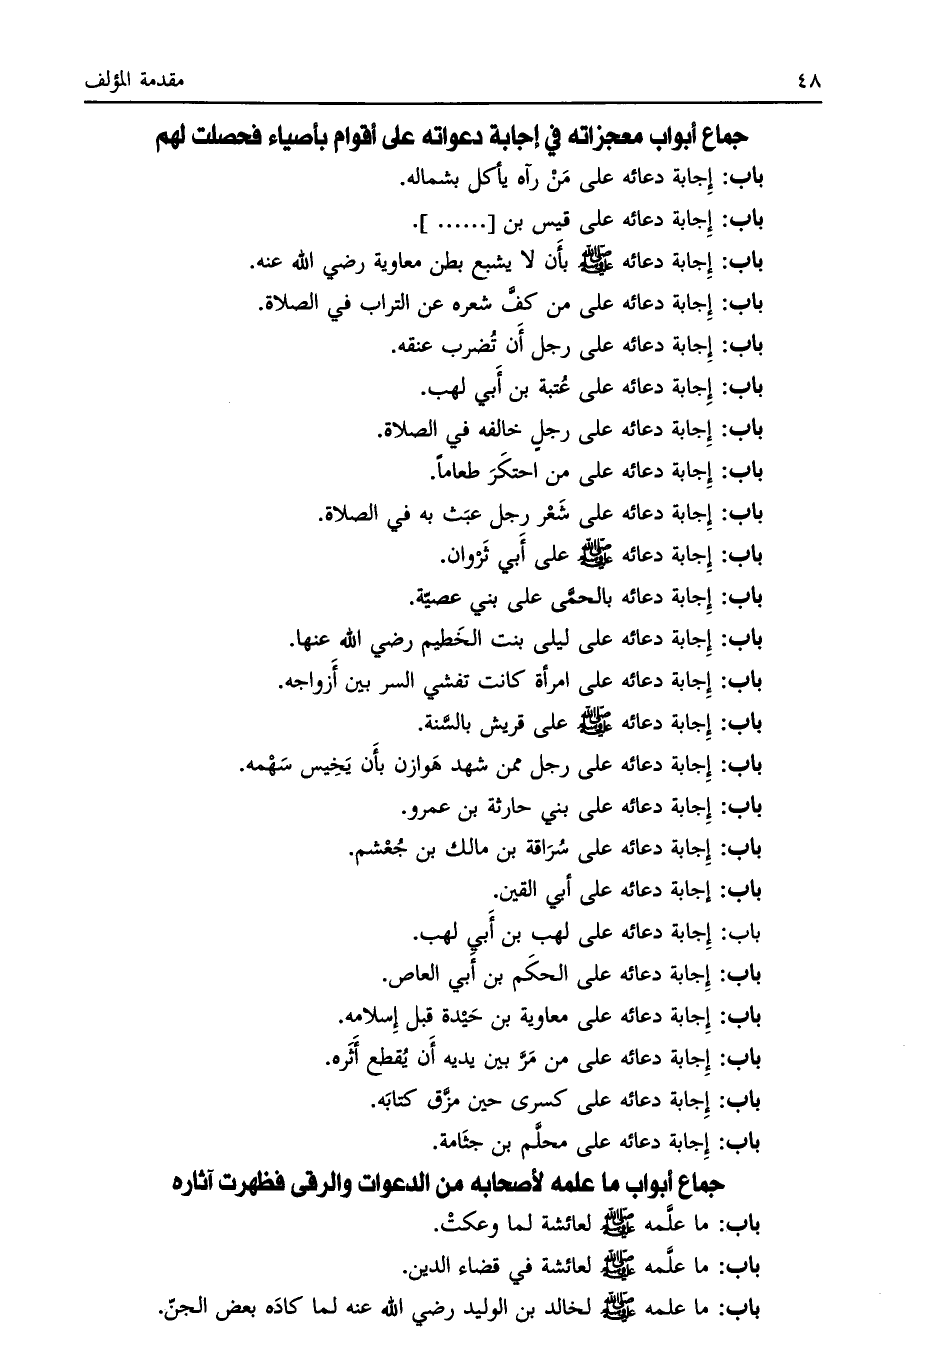 ٤٨ مقدمة المؤلف
جماع أبواب معجزاته في إجابة دعواته على أقوام بأصياء فحصلت لهم
باب: إِجابة دعائه على مَنْ رآه يأكل بشماله.
باب: إِجابة دعائه على قيس بن [...... ].
باب: إِجابة دعائه ﷺ بأَن لا يشبع بطن معاوية رضي الله عنه.
باب: إِجابة دعائه على من كفَّ شعره عن التراب في الصلاة.
باب: إِجابة دعائه على رجل أَن تُضرب عنقه.
باب: إِجابة دعائه على عُتبة بن أَبي لهب.
باب: إِجابة دعائه على رجلٍ خالفه في الصلاة.
باب: إِجابة دعائه على من احتكَرَ طعاماً.
باب: إِجابة دعائه على شَعْر رجل عبَث به في الصلاة.
باب: إِجابة دعائه ﷺ على أَبي ثَرْوان.
باب: إِجابة دعائه بالحمَّى على بني عصيّة.
باب: إِجابة دعائه على ليلى بنت الخَطيم رضي الله عنها.
باب: إِجابة دعائه على امرأة كانت تفشي السر بين أَزواجه.
باب: إِجابة دعائه ﷺ على قريش بالسَّنة.
باب: إِجابة دعائه على رجل ممن شهد هَوازن بأَن يَخِيس سَهْمه.
باب: إِجابة دعائه على بني حارثة بن عمرو.
باب: إِجابة دعائه على سُرَاقة بن مالك بن جُعْشم.
باب: إِجابة دعائه على أبي القين.
باب: إِجابة دعائه على لهب بن أَبي لهب.
باب: إِجابة دعائه على الحكَم بن أَبي العاص.
باب: إِجابة دعائه على معاوية بن حَيْدة قبل إِسلامه.
باب: إِجابة دعائه على من مَرَّ بين يديه أَن يُقطع أَثَره.
باب: إِجابة دعائه على كسرى حين مزَّق كتابَه.
باب: إِجابة دعائه على محلَّم بن جثَامة.
جماع أبواب ما علمه لأصحابه من الدعوات والرقى فظهرت آثاره
باب: ما علَّمه ﷺ لعائشة لما وعكتْ.
باب: ما علَّمه ﷺ لعائشة في قضاء الدين.
باب: ما علمه ﷺ لخالد بن الوليد رضي الله عنه لما كادَه بعض الجنّ.